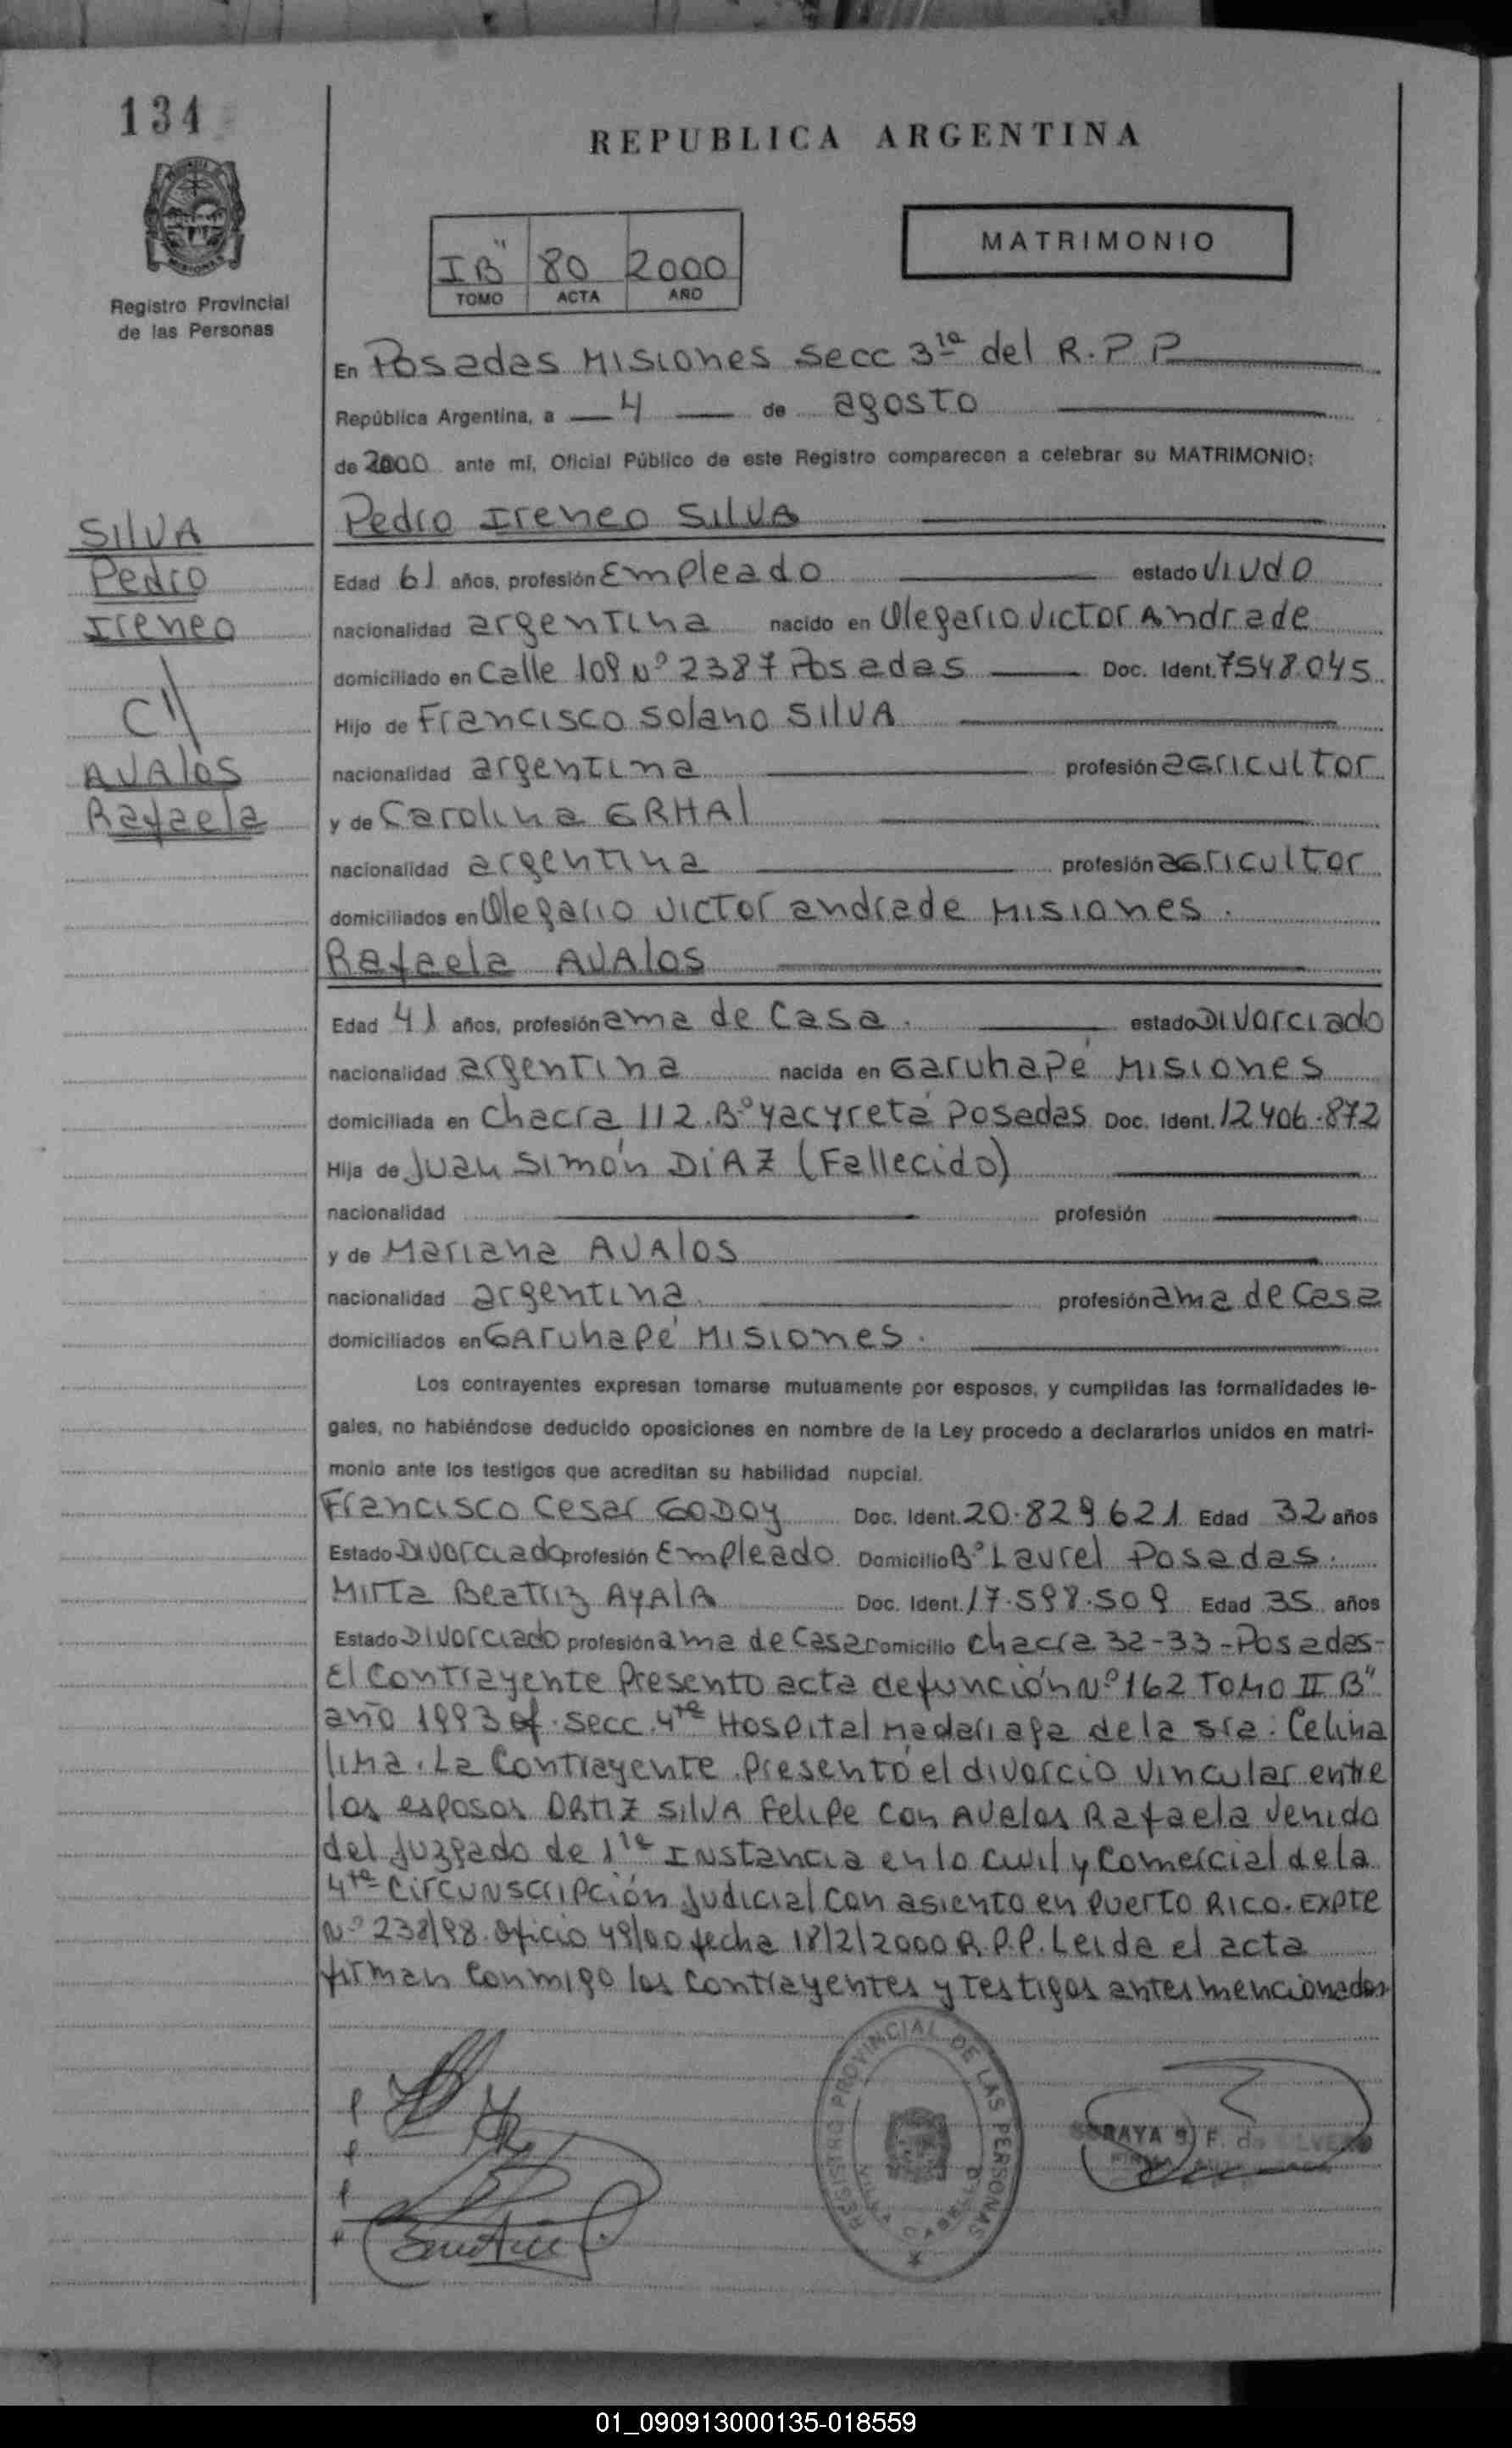 134
REPUBLICA ARGENTINA
MATRIMONIO
IB" 80 2000
TOMO ACTA AÑO
Registro Provincial
de las Personas
En Posadas Misiones Secc 3ra del R.P.P
República Argentina, a 4 de agosto
de 2000 ante mí, Oficial Público de este Registro comparecen a celebrar su MATRIMONIO:
SILVA
Pedro
Ireneo
C//
AVAlos
Rafaela
Pedro Ireneo SILVA
Edad 61 años, profesión Empleado estado Viudo
nacionalidad argentina nacido en Olegario Victor Andrade
domiciliado en Calle 109 Nº 2387 Posadas Doc. Ident. 7548.045
Hijo de Francisco Solano SILVA
nacionalidad argentina profesión agricultor
y de Carolina GRHAl
nacionalidad argentina profesión agricultor
domiciliados en Olegario Victor andrade Misiones.
Rafaela AVAlos
Edad 41 años, profesión ama de Casa. estado Divorciado
nacionalidad argentina nacida en Garuhapé Misiones
domiciliada en Chacra 112.Bº Yacyretá Posadas Doc. Ident. 12.406.872
Hija de Juan Simón DíAZ (Fallecido)
nacionalidad profesión
y de Mariana AVAlos
nacionalidad argentina. profesión ama de Casa
domiciliados en GAruhapé Misiones.
Los contrayentes expresan tomarse mutuamente por esposos, y cumplidas las formalidades le-
gales, no habiéndose deducido oposiciones en nombre de la Ley procedo a declararlos unidos en matri-
monio ante los testigos que acreditan su habilidad nupcial.
Francisco Cesar GODOY Doc. Ident. 20.829.621 Edad 32 años
Estado Divorciado profesión Empleado. Domicilio Bº Laurel Posadas.
Mirta Beatriz AYAlA Doc. Ident. 17.598.509 Edad 35 años
Estado Divorciado profesión ama de Casa Domicilio Chacra 32-33-Posadas-
El Contrayente Presento acta defunción Nº 162 Tomo II B"
año 1993 of. Secc. 4ta Hospital Madariaga de la sra: Celina
lima. La Contrayente. Presentó el divorcio vincular entre
los esposos ORTIZ SILVA Felipe Con Avalos Rafaela Venido
del Juzgado de 1ra Instancia en lo Civil y Comercial de la
4ta Circunscripción Judicial Con asiento en Puerto Rico. Expte
Nº 238/98. Oficio 49/00 fecha 18/2/2000 R.P.P. Leida el acta
firman Conmigo los Contrayentes y Testigos antes mencionados
REGISTRO PROVINCIAL DE LAS PERSONAS
VILLA CABELLO
SORAYA F. de
01_090913000135-018559